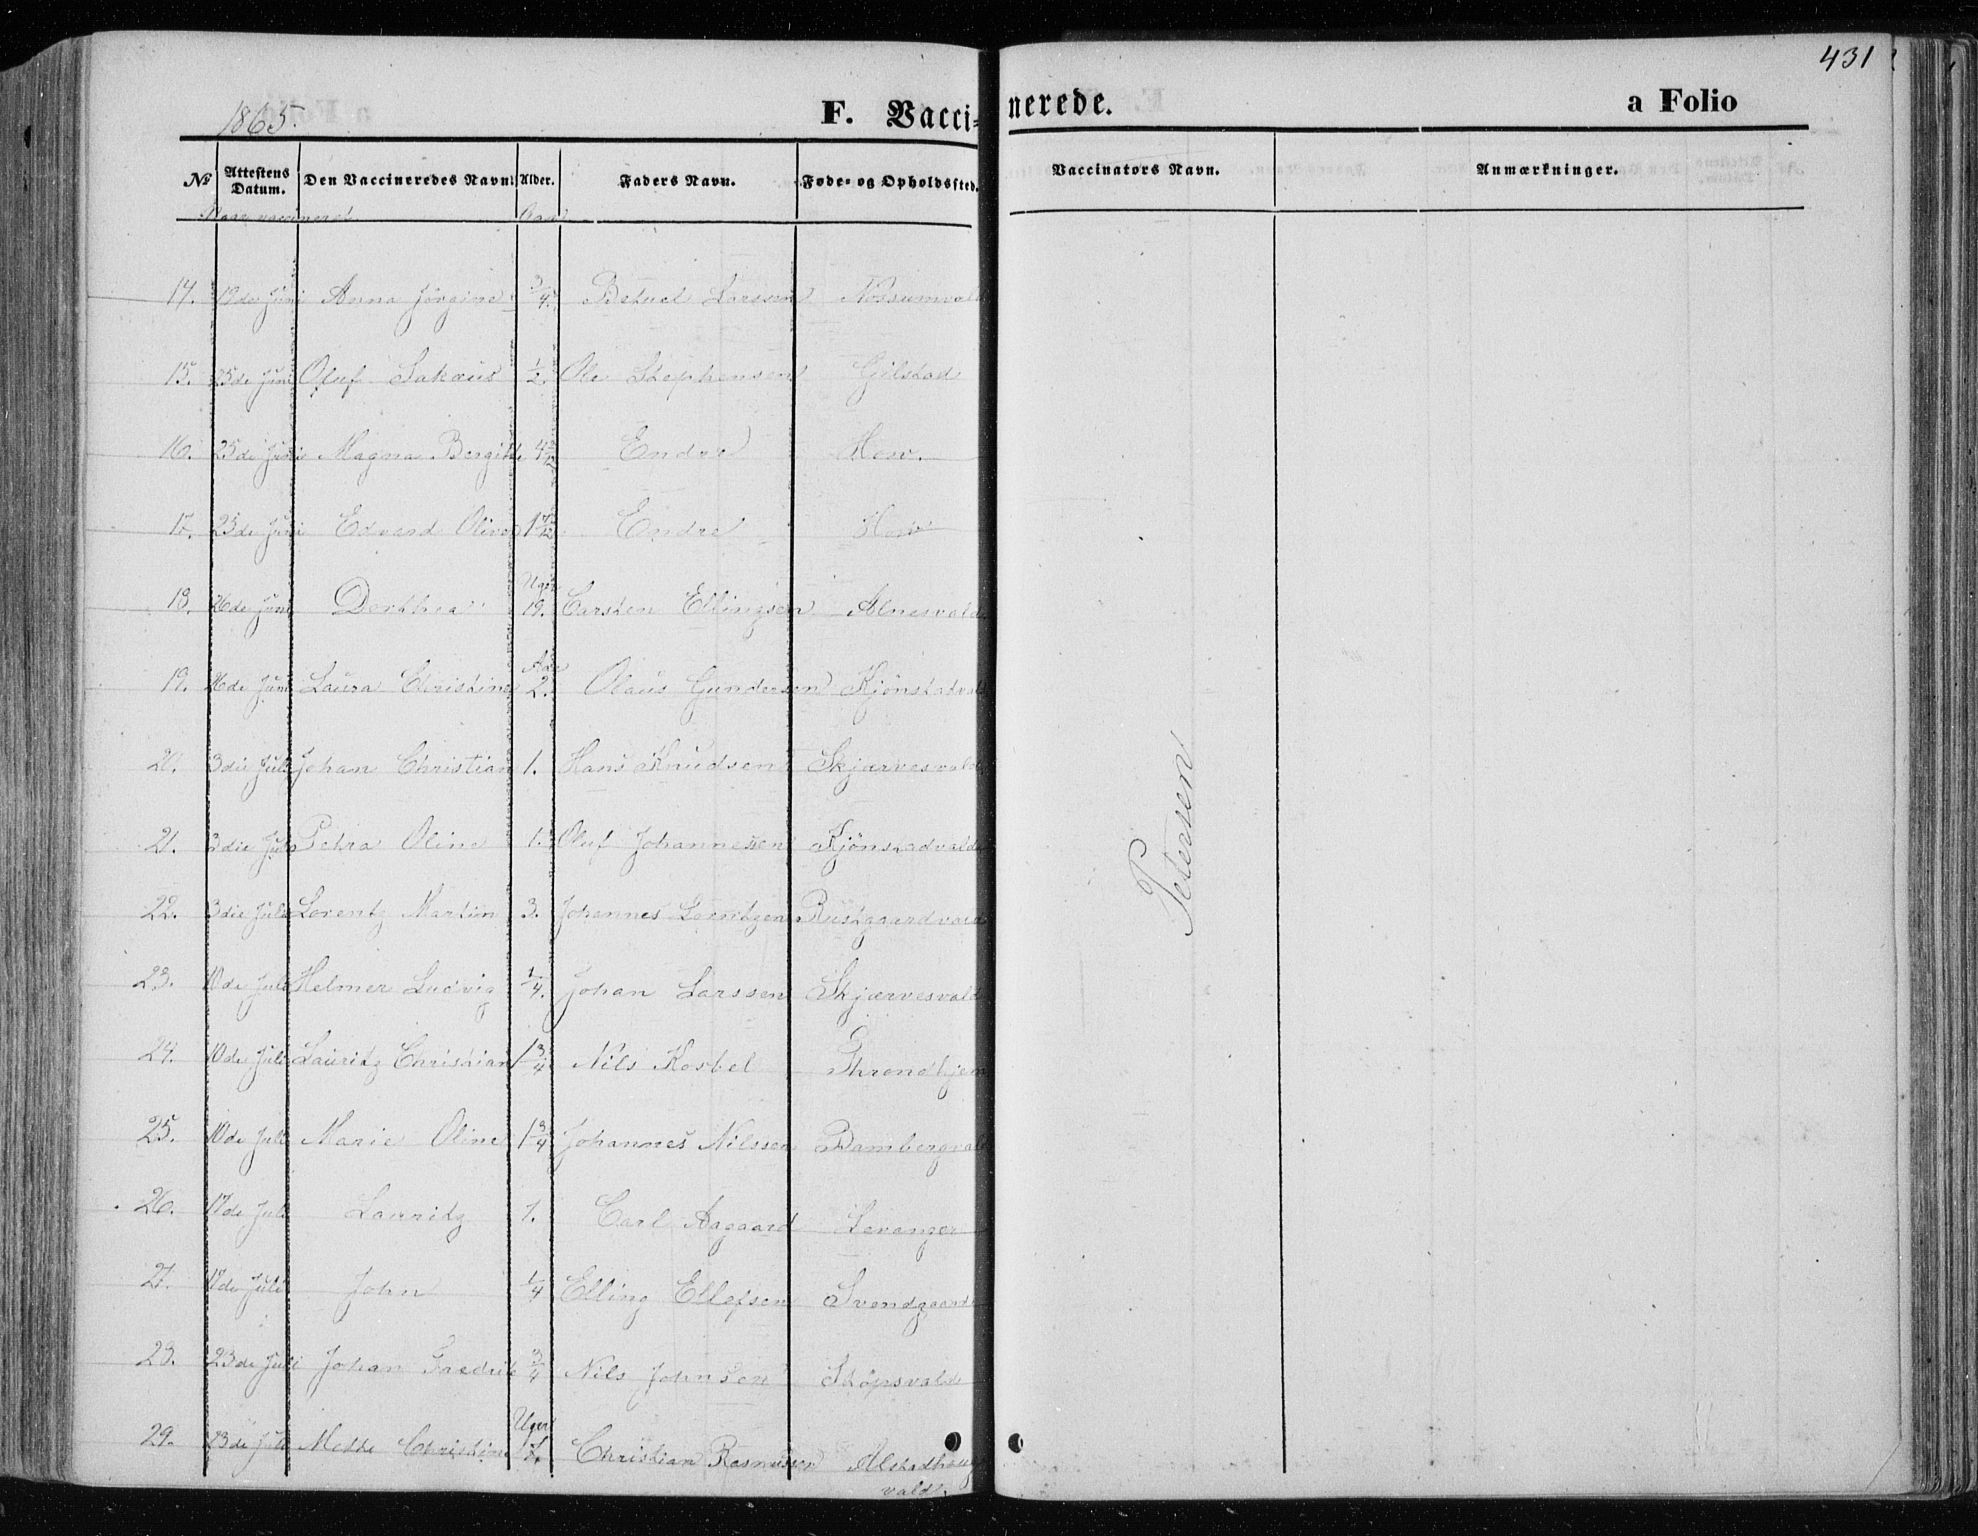 431
1865.
F. Vaccinerede.
a Folio
No Attestens Datum. Den Vaccineredes Navn. Alder. Faders Navn. Føde- og Opholdssted. Vaccinators Navn. Anmærkninger.
Naar vaccineret Aar
14. 19de Juni Anna Jörgine 3/4. Betuel Larssen Nossumvald
15. 25de Juni Oluf Sakæus 1/2. Ole Stephensen Gilstad
16. 25de Juni Magna Bergitte Endre Hov.
25de Juni Edvard Oliver Endre Hov
18. 26de Juni Dorthea Uger 19. Carsten Ellingsen Alnesvald
19. 26de Juni Laura Christine Aar 2. Olaus Gundersen Kjönstadvald
20. 3die Juli Johan Christian 1. Hans Knudsen Skjærvesvald
21. 3die Juli Petra Oline 1. Oluf Johannessen Kjönstadvald
22. 3die Juli Lorentz Martin 3. Johannes Lorntzen Rustgaardvald
23. 10de Juli Helmer Ludvig 1/4. Johan Larssen Skjærvesvald
24. 10de Juli Lauritz Christian 1 3/4 Nils Kosbel Throndhjem
25. 10de Juli Marie Oline 1 3/4 Johannes Nilssen Bambergvald
26. 17de Juli Lauritz 1. Carl Aagaard Levanger
27. 17de Juli John 1/4 Elling Ellefsen Svendgaard
28. 23de Juli Johan Fredrik 3/4 Nils Johnsen Stöpsvald
29. 23de Juli Mette Christine Uger Christian Rasmussen Alstadhoug
vald.
Petersen